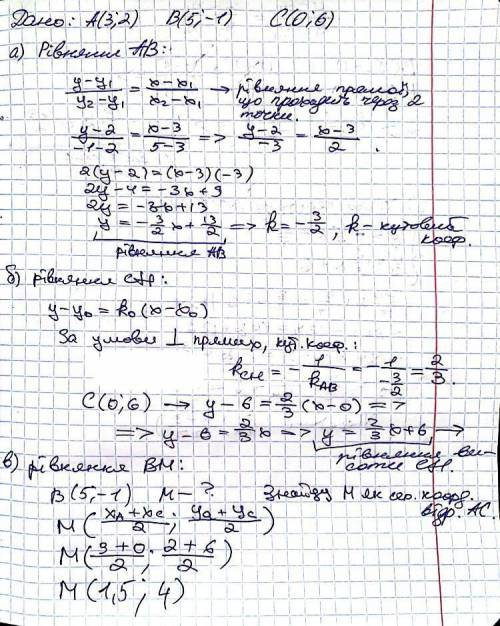 Дано: A(3;2) B(5;-1) C(0;6)
а) Рівняння AB:
(y-y₁)/(y₂-y₁) = (x-x₁)/(x₂-x₁) → рівняння прямої,
що проходить через 2
точки.
(y-2)/(-1-2) = (x-3)/(5-3) => (y-2)/(-3) = (x-3)/2.
2(y-2)=(x-3)(-3)
2y-4=-3x+9
2y=-3x+13
y=-3/2x+13/2 => k=-3/2, k-кутовий
коеф.
рівняння AB
б) рівняння CH:
y-y₀=k₀(x-x₀)
За умови ⊥ прямих, кут. коеф.:
k_CH = -1/k_AB = -1/(-3/2) = 2/3.
C(0;6) → y-6=2/3(x-0) =>
=> y-6=2/3x => y=2/3x+6 →
рівняння ви-
соти CH.
в) рівняння BM:
B(5;-1) M-? Знайду M як сер. коорд.
відр. AC.
M((x_A+x_C)/2; (y_A+y_C)/2)
M((3+0)/2; (2+6)/2)
M(1,5; 4)